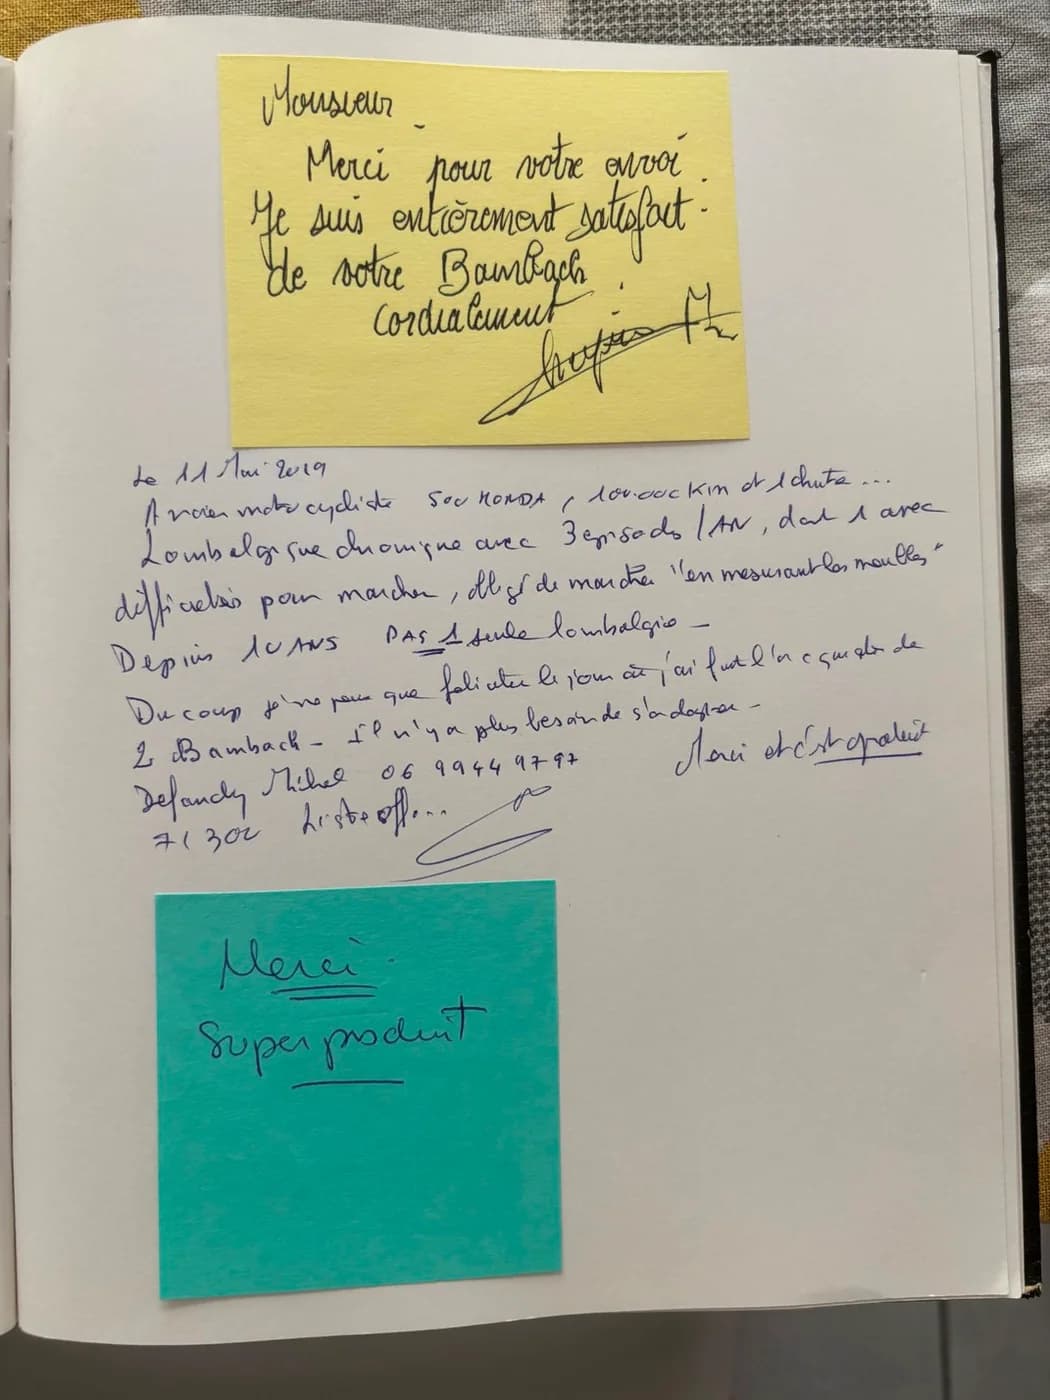 Monsieur
Merci pour votre envoi.
Je suis entièrement satisfait
de votre Bambach.
Cordialement
Le 11 Mai 2019
Ancien motocycliste 500 HONDA, 100.000 Km et 1 chute...
Lombalgique chronique avec 3 episodes/AN, dont 1 avec
difficultés pour marcher, obligé de marcher "en mesurant les meubles"
Depuis 10 ANS PAS 1 seule lombalgie -
Du coup je ne peux que feliciter le jour où j'ai fait l'acquisition de
2 Bambach - Il n'y a plus besoin de s'adapter -
Michel 06 99 44 97 97
Merci et c'est gratuit
71300 Liste off...
Merci.
Super produit